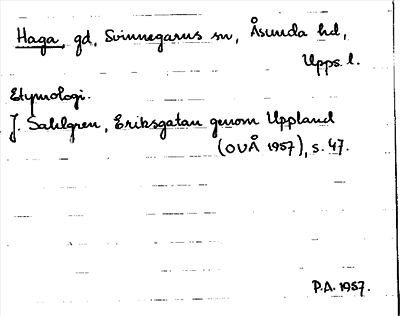 Haga, gd, Svinnegarns sn, Åsunda hd,
Upps. l.
Etymologi.
J. Sahlgren, Eriksgatan genom Uppland
(OUÅ 1957), s. 47.
P.A. 1957.